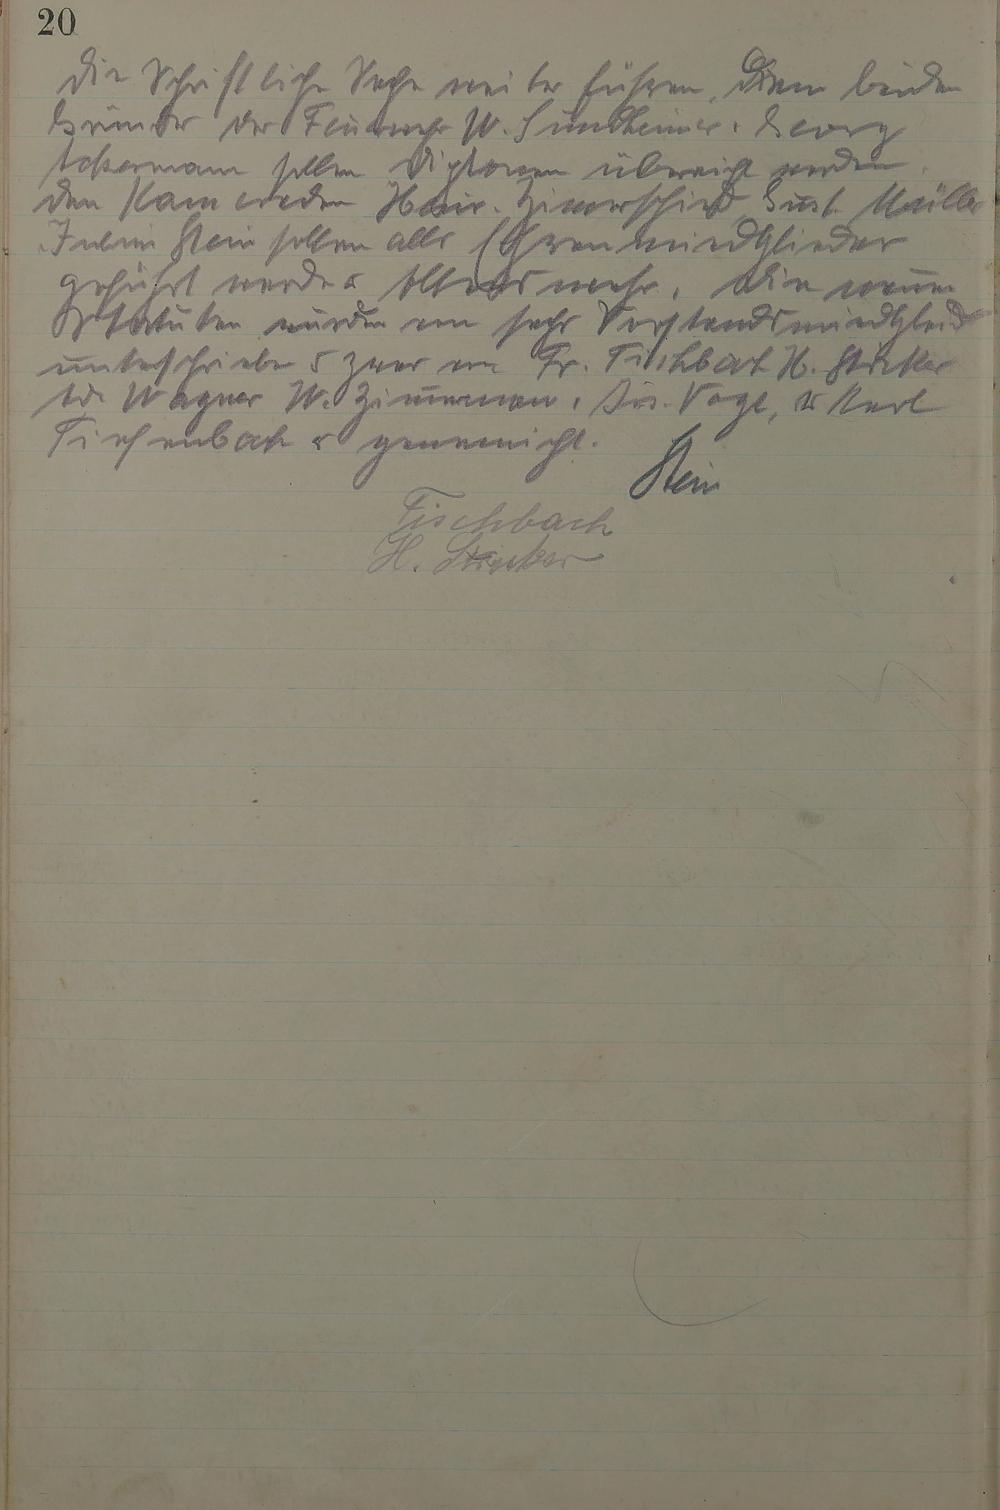 20
die Schriftliche Sache weiter führen. Denn beiden
Gründer der Feuerwehr W. Sundheimer. Georg
Ackermann sollen Diplomen überreicht werden.
den Kameraden Heinr. Zimerschied, Gust. Müller
Julius Stein sollen alls Ehrenmiedglieder
geführt werden Alterswehr. Die neuen
Statuten wurden von sechs Vorstandsmiedglied
unterschrieben zwar von Fr. Fischbach H. Stricker
Wagner W. Zimmermann. Vogt, Karl
Tiefenbach genemicht.
Stein
Fischbach
H. Stricker